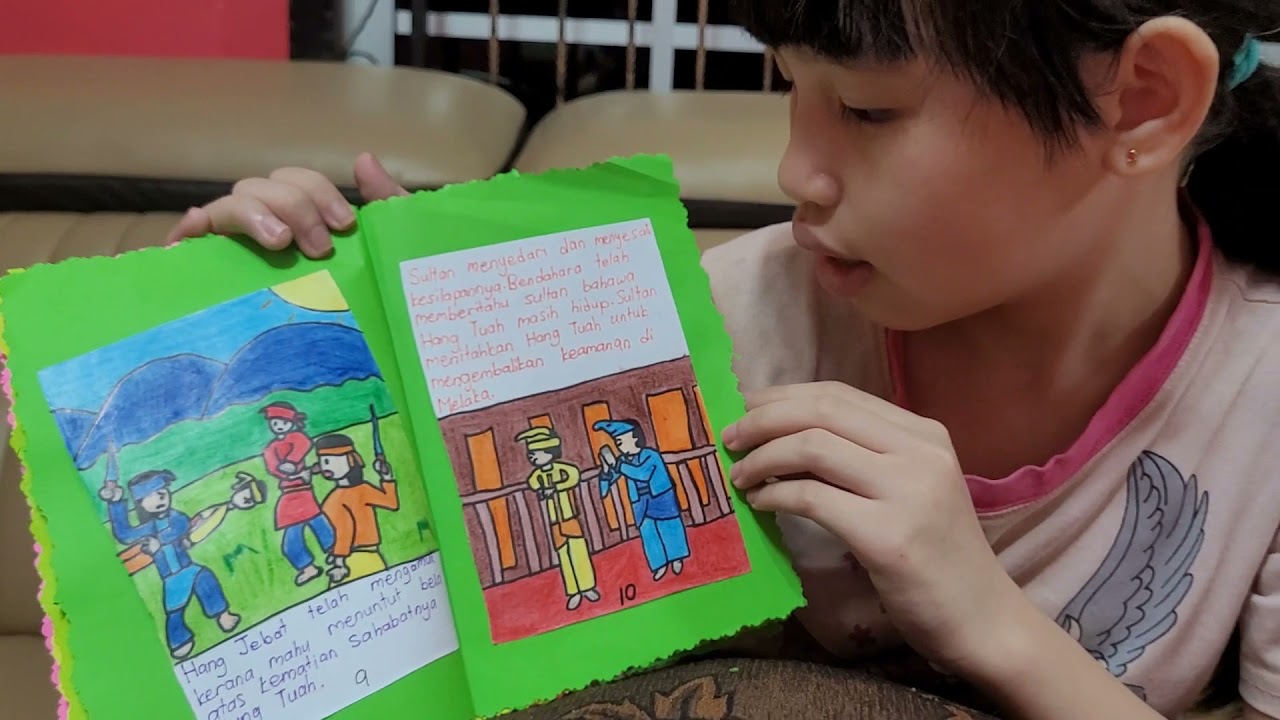 Hang Jebat telah mengamuk
kerana mahu menuntut bela
atas kematian sahabatnya
Tuah.
9
Sultan menyedari dan menyesal
kesilapannya. Bendahara telah
memberitahu sultan bahawa
Hang Tuah masih hidup. Sultan
menitahkan Hang Tuah untuk
mengembalikan keamanan di
Melaka.
10